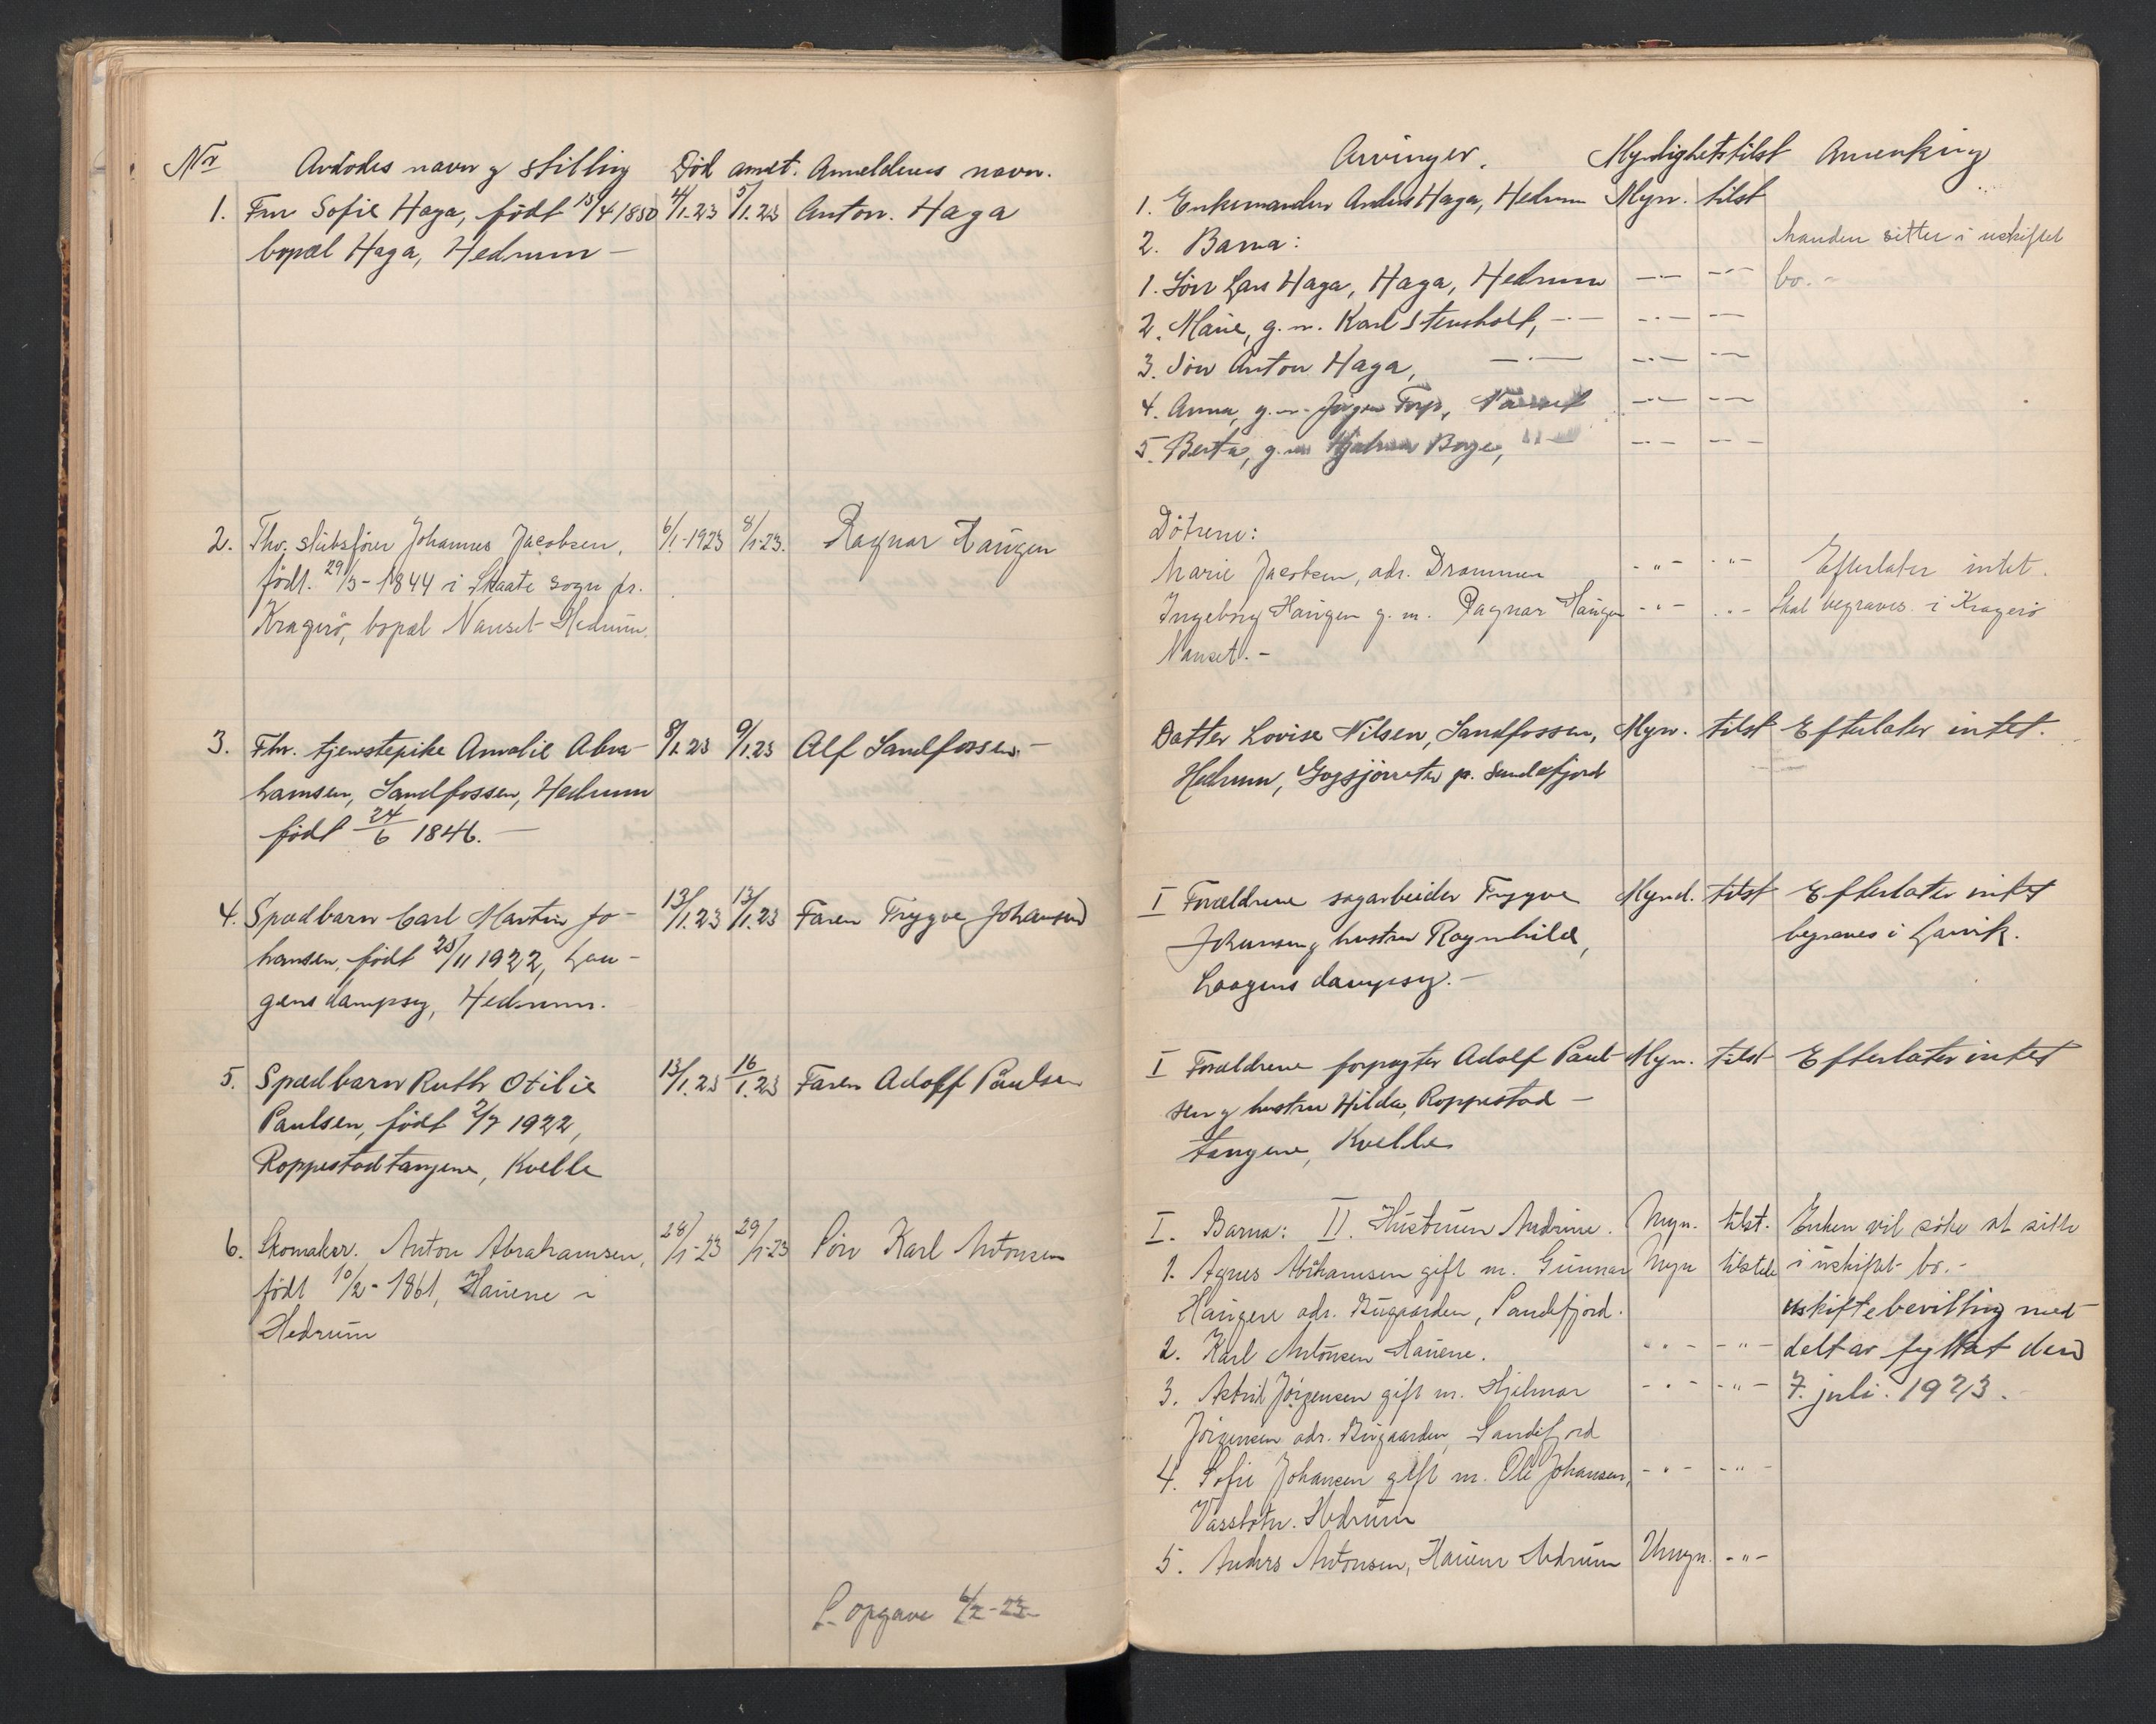 Nr Avdødes navn og stilling Død anmt. Anmelderens navn.
1. Fru Sofie Haga, født 15/4 1850 4/1.23 5/1.23 Anton Haga
bopæl Haga, Hedrum –
2. Fhv. skibsfører Johannes Jacobsen, 6/1-1923 8/1-23. Ragnar Haugen
født. 29/3-1844 i Skaate sogn pr.
Kragerø, bopæl Nanset Hedrum.
3. Fhv. tjenstepike Amalie Abra- 8/1.23 9/1.23 Alf Sandfossen. –
hamsen, Sandfossen, Hedrum
født 24/6 1846. –
4. Spædbarn Carl Martin Jo- 13/1.23 13/1.23 Faren Trygve Johansen
hansen, født 25/11 1922, Lau-
gens dampsag, Hedrum.
5. Spædbarn Ruth Otilie 13/1.23 16/1.23 Faren Adolf Paulsen
Paulsen, født 2/7 1922,
Roppestadtangene, Kvelle
6. Skomaker. Anton Abrahamsen, 28/1-23 29/1-23 Søn Karl Antonsen
født 10/2-1861, Hauene i
Hedrum
opgave 6/2-23
Arvinger. Myndighetstilst Anmerking
1. Enkemanden Anders Haga, Hedrum Myn. tilst
2. Barna: Manden sitter i uskiftet
1. Søn Lars Haga, Haga, Hedrum –·– –·– bo. –
2. Marie, g. m. Karl Stensholt, –·– –·– –·–
3. Søn Anton Haga, –·– –·– –·–
4. Anna, g. m. Jørgen Torp, Nanset –·– –·–
5. Berta, g. m. Hjalmar Borge, –"– –·– –·–
Døtrene:
Marie Jacobsen, adr. Drammen -"- -"- Efterlater intet.
Ingeborg Haugen g. m. Ragnar Haugen -"- -"- Skal begraves i Kragerø
Nanset. –
Datter Lovise Nilsen, Sandfossen, Myn. tilst Efterlater intet.
Hedrum, pr. Sandefjord
I Forældrene sagarbeider Trygve Mynd. tilst Efterlater intet
Johansen og hustru Ragnhild, begraves i Larvik.
Laagens dampsag. –
I Forældrene forpagter Adolf Paul- Myn. tilst Efterlater intet
sen og hustru Hilda, Roppestad –
tangene, Kvelle
I. Barna: II. Hustruen Andrine. Myn. tilst. Enken vil søke at sitte
1. Agnes Abrahamsen gift m. Gunnar Myn tilstede i uskiftet bo. –
Haugen adr. Bugaarden, Sandefjord. uskiftebevilling med-
2. Karl Antonsen Hauene. -"- -"- delt av fylket den
3. Astrid Jørgensen gift m. Hjalmar -"- -"- 7. juli. 1923.
Jørgensen adr. Bugaarden, Sandefjord
4. Sofie Johansen gift m. Ole Johansen, -"- -"-
Vassbotn. Hedrum
5. Anders Antonsen, Hauene Hedrum Umyn. -"-